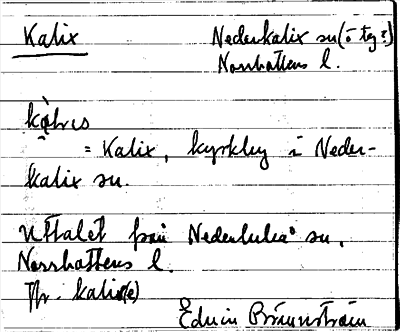 Kalix Nederkalix sn (ö tg?)
Norrbottens l.
= Kalix, kyrkby i Neder-
kalix sn.
Uttalet från Nederluleå sn,
Norrbottens l.
Jfr. Kalix(e)
Edvin Brännström